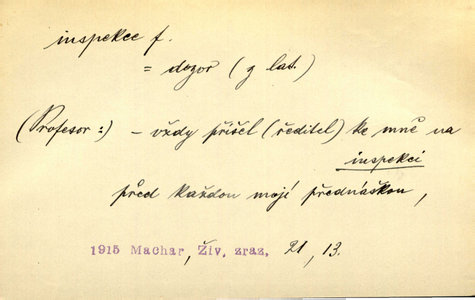 inspekce f.
= dozor (z lat.)
(Profesor:) – vždy přišel (ředitel) ke mně na
inspekci
před každou mojí přednáškou,
1915 Machar, Živ. zraz, 21, 13.